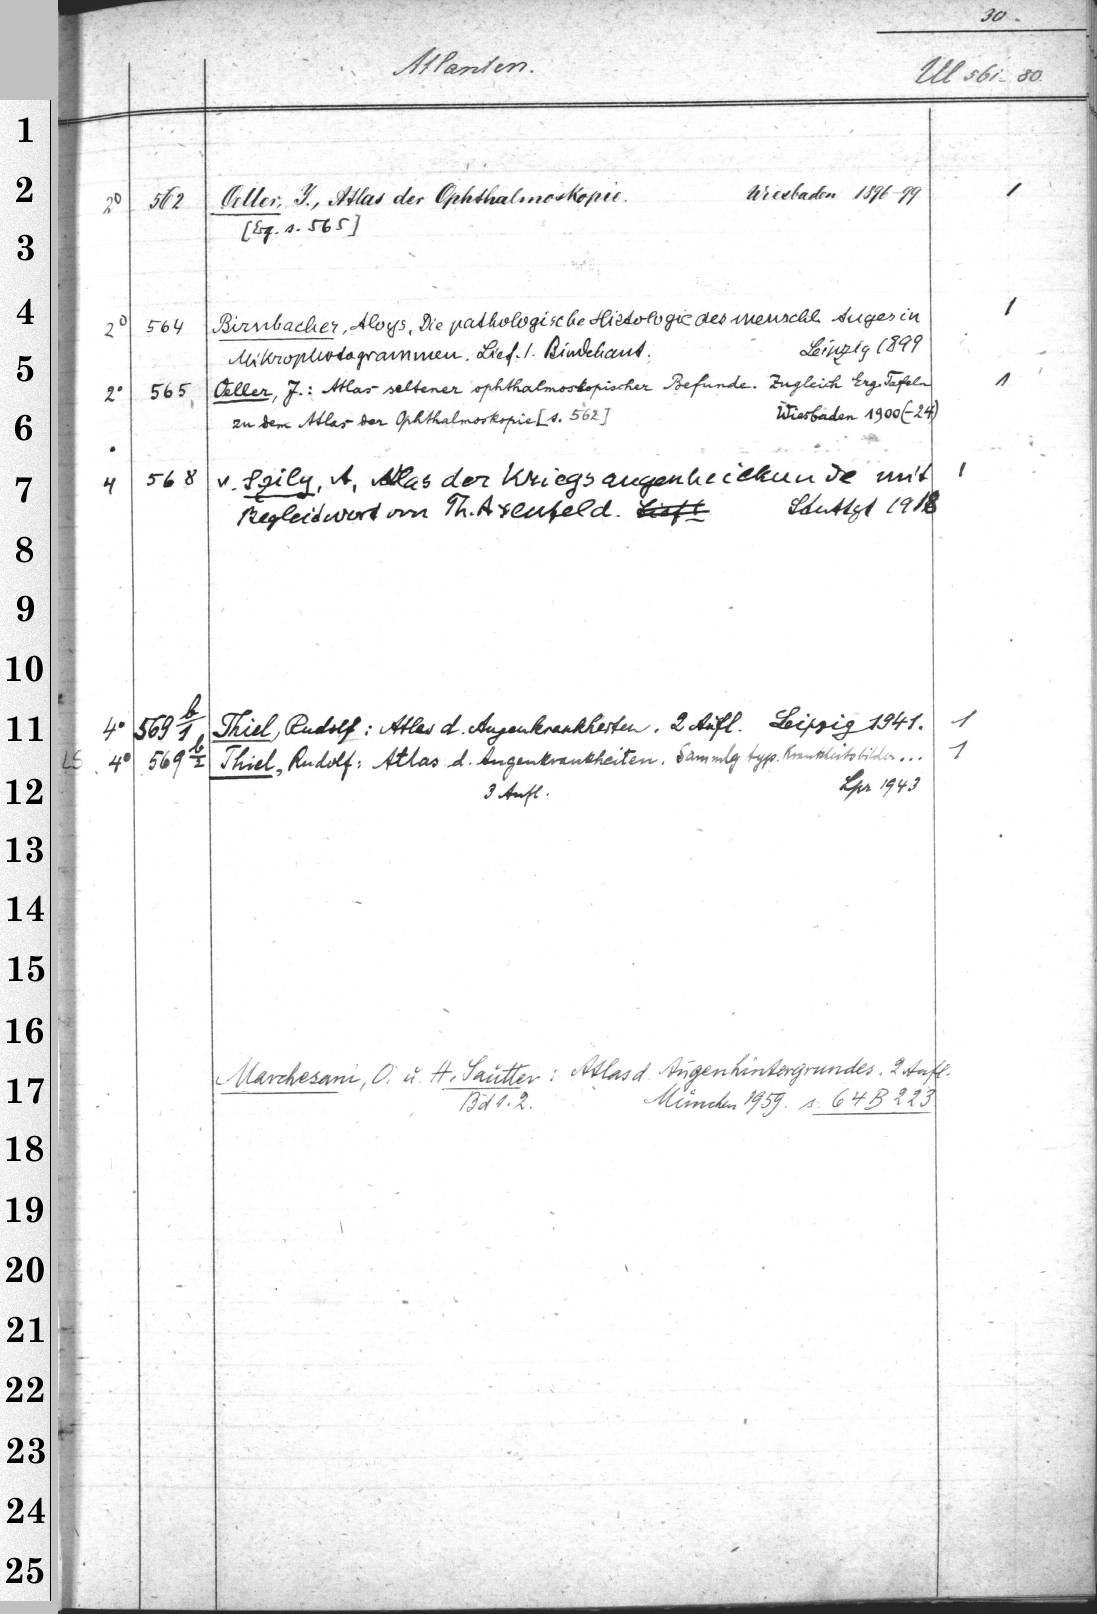 30.
Atlanten.
Ul 561-80
1
2
2° 562 Oeller, J., Atlas der Ophthalmoskopie. Wiesbaden 1896-99 1
[Erg. s. 565]
3
4
2° 564 Birnbacher, Aloys, Die pathologische Histologie des menschl. Auges in 1
Mikrophotogrammen. Lief. 1. Bindehaut. Leipzig 1899
5
2° 565 Oeller, J.: Atlas seltener ophthalmoskopischer Befunde. Zugleich Erg. Tafeln 1
zu dem Atlas der Ophthalmoskopie [s. 562] Wiesbaden 1900(-24)
6
7
4° 568 v. Szily, A, Atlas der Kriegsaugenheilkunde mit 1
Begleitwort von Th. Axenfeld. Stuttgt 1918
8
9
10
11
4° 569 b/1 Thiel, Rudolf: Atlas d. Augenkrankheiten. 2 Aufl. Leipzig 1941. 1
LS. 4° 569 b/2 Thiel, Rudolf: Atlas d. Augenkrankheiten. Sammlg typ. Krankheitsbilder... 1
12
3 Aufl. Lpz 1943
13
14
15
16
17
Marchesani, O. u. H. Sautter: Atlas d. Augenhintergrundes. 2 Aufl.
Bd 1.2. München 1959. s. 64 B 223
18
19
20
21
22
23
24
25